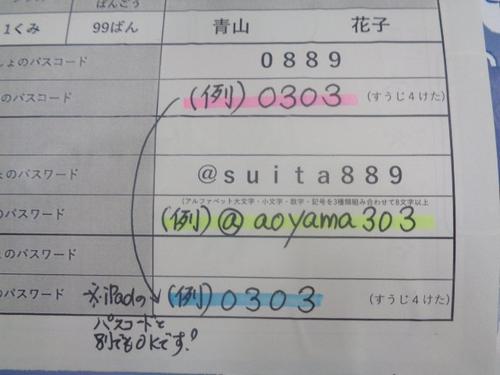 ばんごう
1くみ 99ばん 青山 花子
しょのパスコード 0889
のパスコード (例) 0303 (すうじ4けた)
ょのパスワード @suita889
(アルファベット大文字・小文字・数字・記号を3種類組み合わせて8文字以上
のパスワード (例) @aoyama303
ょのパスワード
のパスワード ※iPadの (例) 0303 (すうじ4けた)
パスコードと
別でもOKです!